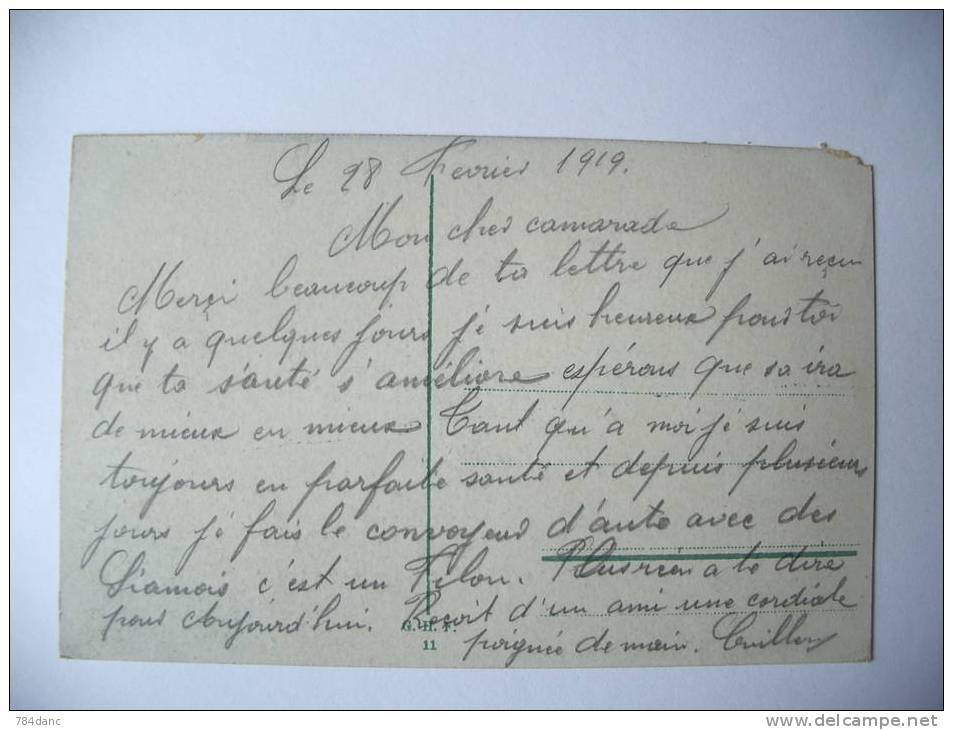 Le 28 Fevrier 1919.
Mon cher camarade
Merçi beaucoup de ta lettre que j'ai reçue
il y a quelques jours je suis heureux pour toi
que ta santé s'améliore espérons que sa ira
de mieux en mieux Tant qu'à moi je suis
toujours en parfaite santé et depuis plusieurs
jours je fais le convoyeur d'auto avec des
Siamois c'est un Filon. Plus rien a te dire
pour Aujourd'hui. Reçoit d'un ami une cordiale
poignée de main.
G. H. F.
11
784danc
www.delcampe.net